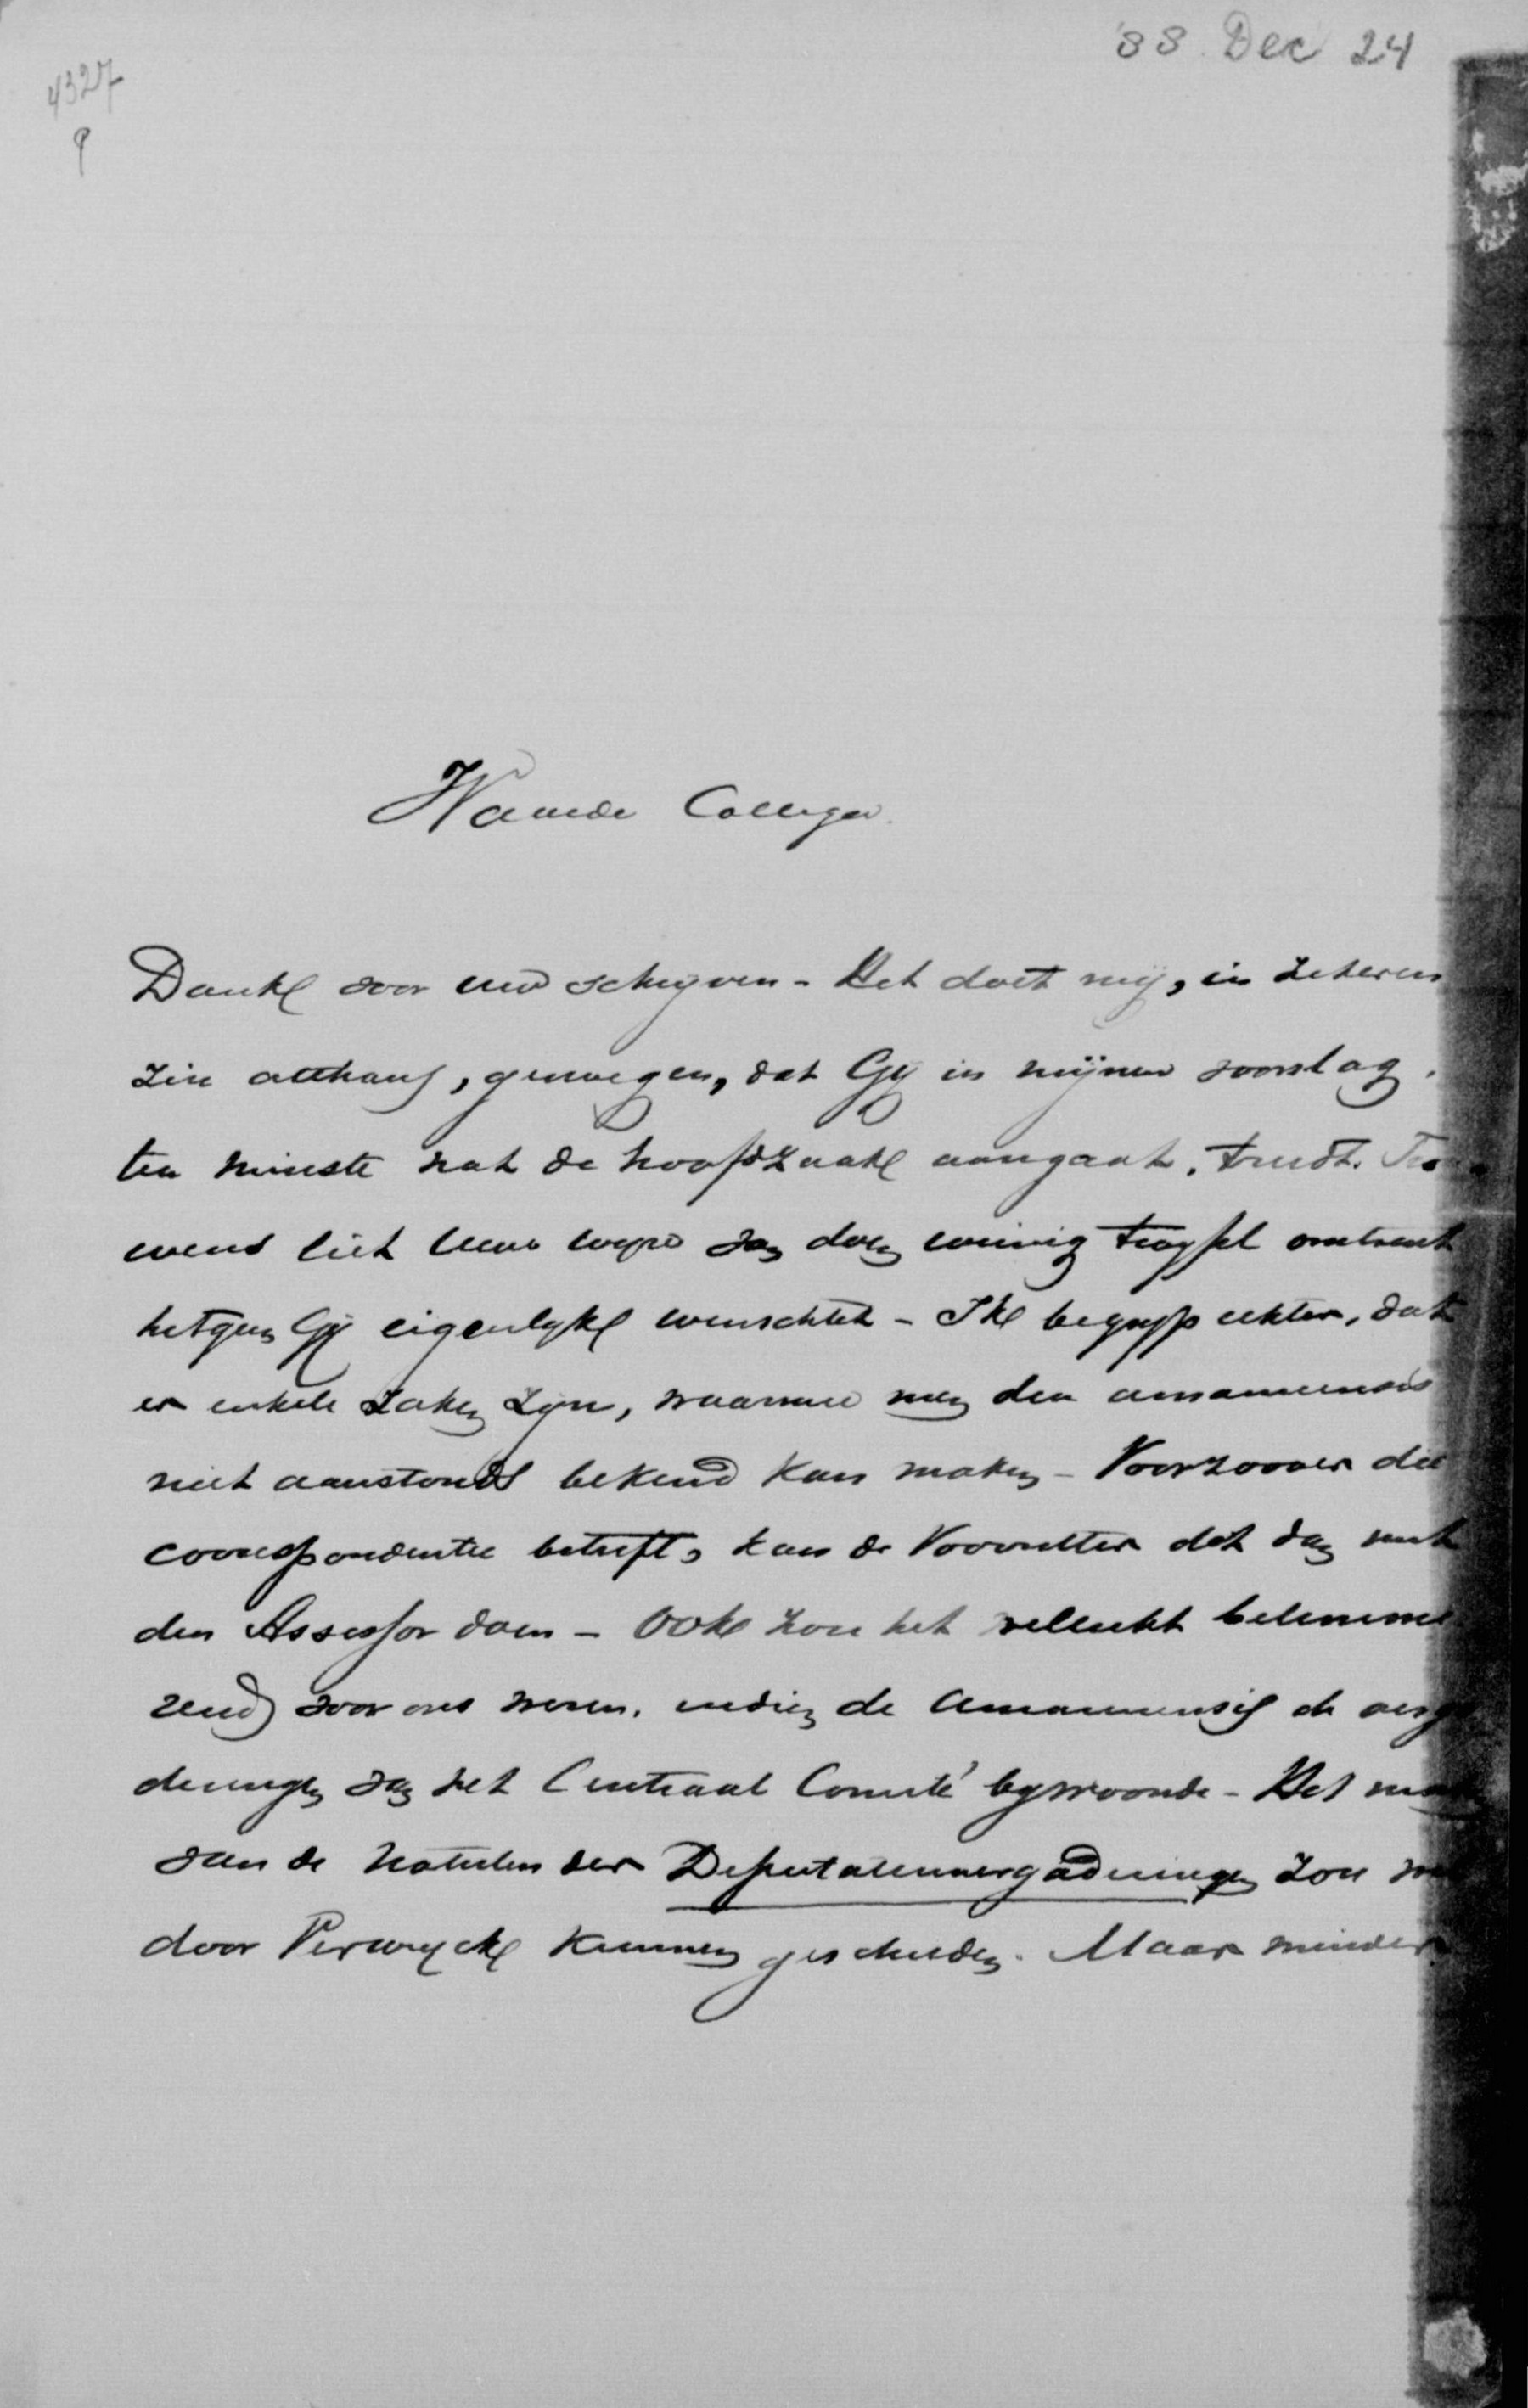 '88 Dec 24
4327
9
Waarde Collega.
Dank voor uw schrijven - Het doet mij, in zekeren
zin althans, genoegen, dat Gij in mijnen voorslag,
ten minste wat de hoofdzaak aangaat, treedt.
wens liet Uwe den weinig twijfel omtrent
hetgeen Gij eigenlijk wenschtet - Ik begrijp echter, dat
er enkele zaken zijn, waarmee men den amanuensis
niet aanstonds bekend kan maken - Voorzoover die
correspondentie betreft, kan de Voorzitter dat dan met
den Assessor doen - Ook zou het wellicht belemme
rend voor ons wezen, indien de Amanuensis de verga
deringen van het Centraal Comité bijwoonde - Het
van de notulen der Deputatenvergaderingen zou
door Verwijck kunnen geschieden. Maar minder